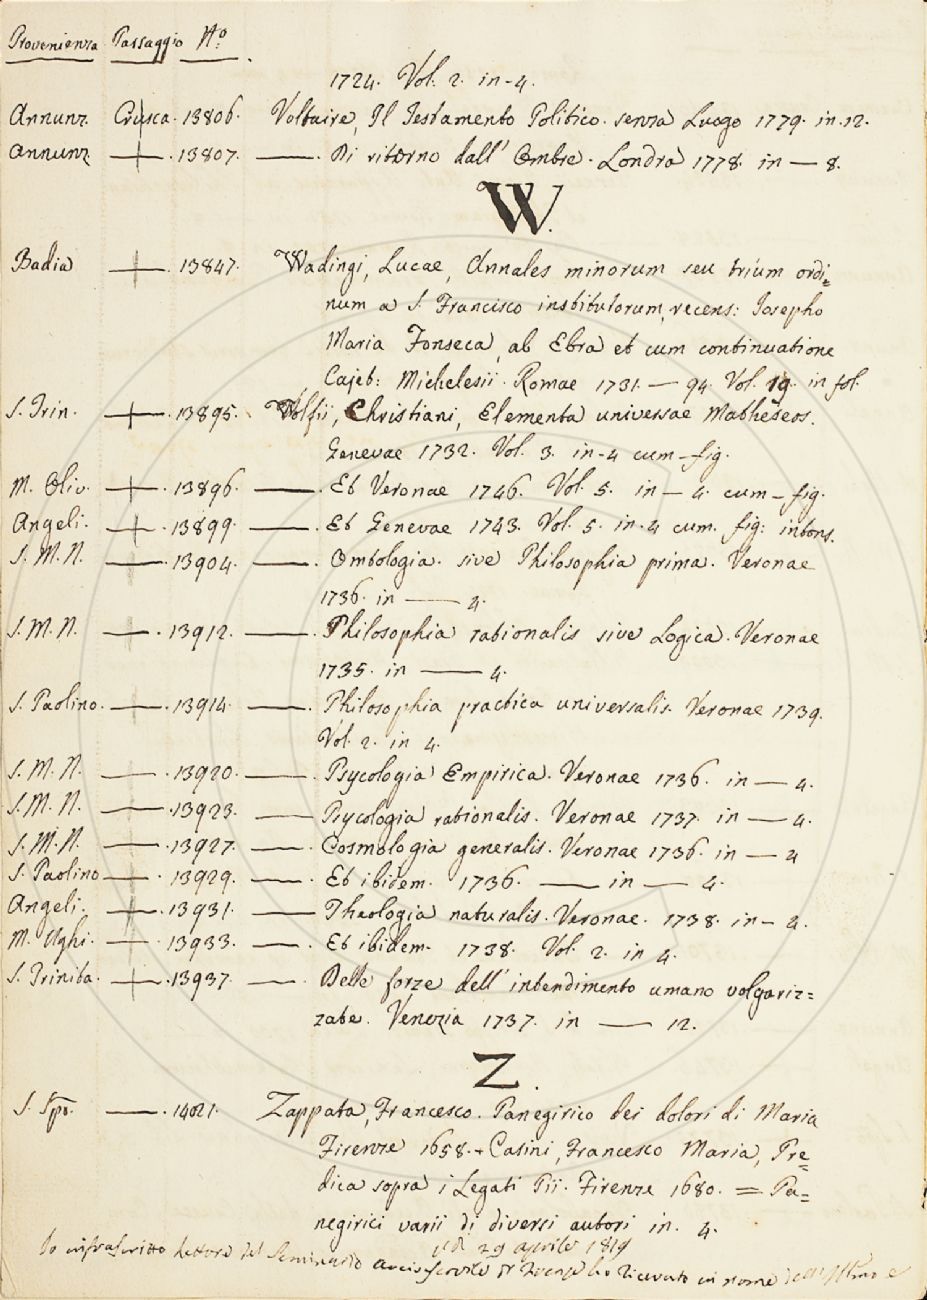 Provenienza Passaggio N.o
1724. Vol. 2. in-4.
Annunz. Crusca. 13806. Voltaire, Il Testamento Politico. senza Luogo 1779. in.12.
Annunz. — . 13807. — . Di ritorno dall' Ombre. Londra 1778. in — 8.
W.
Badia — . 13847. Wadingi, Lucae, Annales minorum seu trium ordi=
num a S. Francisco institutorum, recens: Iosepho
Maria Fonseca, ab Ebra et cum continuatione
Cajet: Michelesii. Romae 1731. — 94. Vol. 19. in fol.
S. Trin. — . 13895. Wolfii, Christiani, Elementa universae Matheseos.
Genevae 1732. Vol. 3. in-4 cum-fig.
M. Oliv. — . 13896. — . Et Veronae 1746. Vol. 5. in — 4. cum-fig.
Angeli. — . 13899. — . Et Genevae 1743. Vol. 5. in.4 cum. fig: intons.
S. M. N. — . 13904. — . Ontologia. sive Philosophia prima. Veronae
1736. in — 4.
S. M. N. — . 13912. — . Philosophia rationalis sive Logica. Veronae
1735. in — 4.
S. Paolino. — . 13914. — . Philosophia practica universalis. Veronae 1739.
Vol. 2. in 4.
S. M. N. — . 13920. — . Psycologia Empirica. Veronae 1736. in — 4.
S. M. N. — . 13923. — Psycologia rationalis. Veronae 1737. in — 4.
S. M. N. — . 13927. — . Cosmologia generalis. Veronae 1736. in — 4
S. Paolino — . 13929. — . Et ibidem. 1736. — in — 4.
Angeli. — . 13931. — Theologia naturalis. Veronae. 1738. in — 4.
M. Ughi. — . 13933. — . Et ibidem. 1738. Vol. 2. in 4.
S. Trinita. — . 13937. — . Delle forze dell' intendimento umano volgariz=
zate. Venezia 1737. in — 12.
Z.
S. Spo. — . 14021. Zappata, Francesco. Panegirico dei dolori di Maria
Firenze 1658. + Casini, Francesco Maria, Pre=
dica sopra i Legati Pii. Firenze 1680. = Pa=
negirici varii di diversi autori in. 4.
29 aprile 1819
Io infrascritto Rettore del Seminario arcivescovile di Firenze ho ricevuto in nome dell' Illmo e